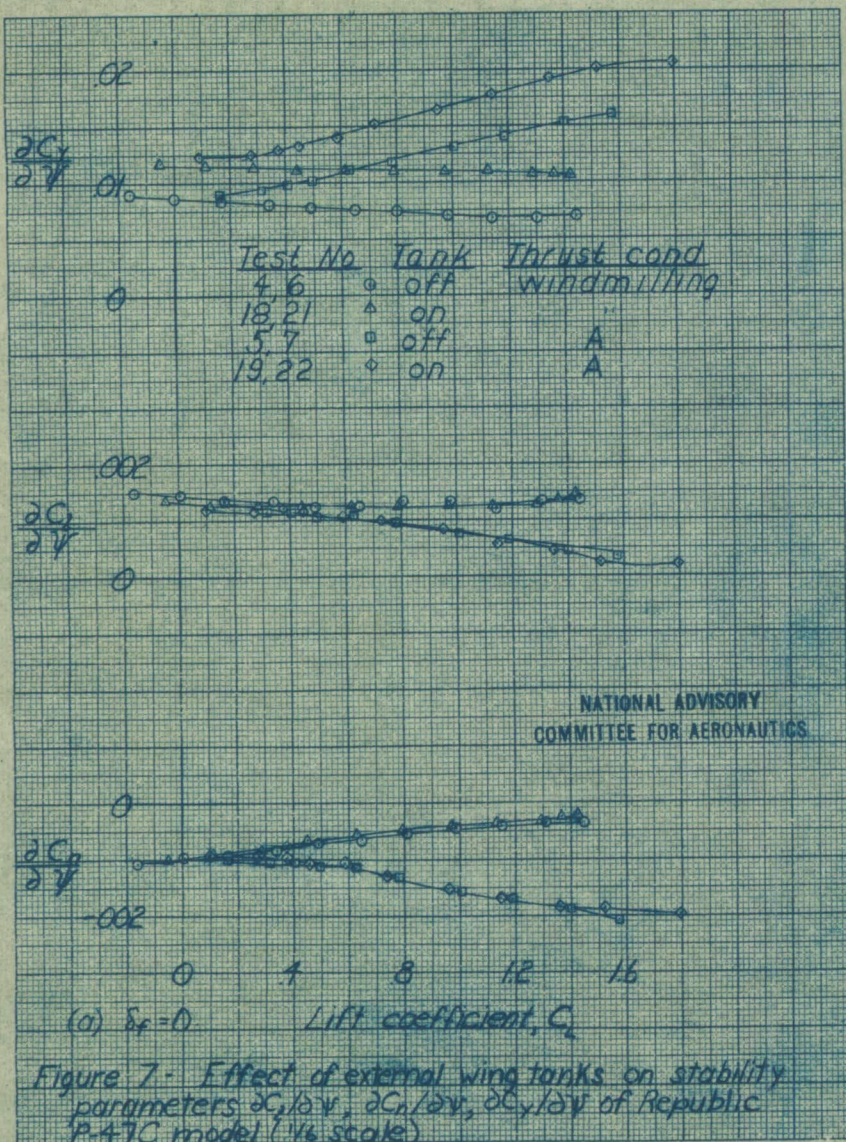 .02
∂C_Y/∂ψ
.01
0
Test No. Tank Thrust cond
4,6 ○ off windmilling
18,21 △ on "
5,7 □ off A
19,22 ◇ on A
.002
∂C_l/∂ψ
0
NATIONAL ADVISORY
COMMITTEE FOR AERONAUTICS
0
∂C_n/∂ψ
-.002
0 .4 .8 1.2 1.6
(a) δ_f = 0 Lift coefficient, C_L
Figure 7 - Effect of external wing tanks on stability
parameters ∂C_l/∂ψ, ∂C_n/∂ψ, ∂C_Y/∂ψ of Republic
P-47C model (1/6 scale)